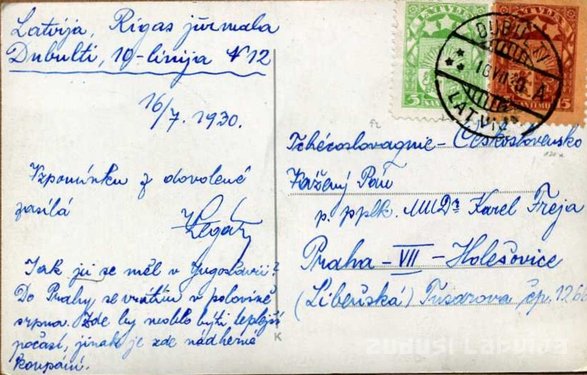 Latvija, Rigas jūrmala
Dubulti, 10-linija N 12
16/7. 1930.
Vzpomínku z dovolené
zasílá
Jak jsi se měl v Jugoslavii?
Do Prahy se vrátím v polovině
srpna. Zde by mohlo býti lepší
počasí, jinak je zde nádherné
koupání.
LATVIJA
5 SANTIMI
LATVIJA
5
DUBULTI
LATVIJA
Tchécoslovaquie - Československo
Vážený Pán
p. pplk. MUDr Karel Freja
Praha - VII - Holešovice
(Libeňská) Tusarova čp.
K